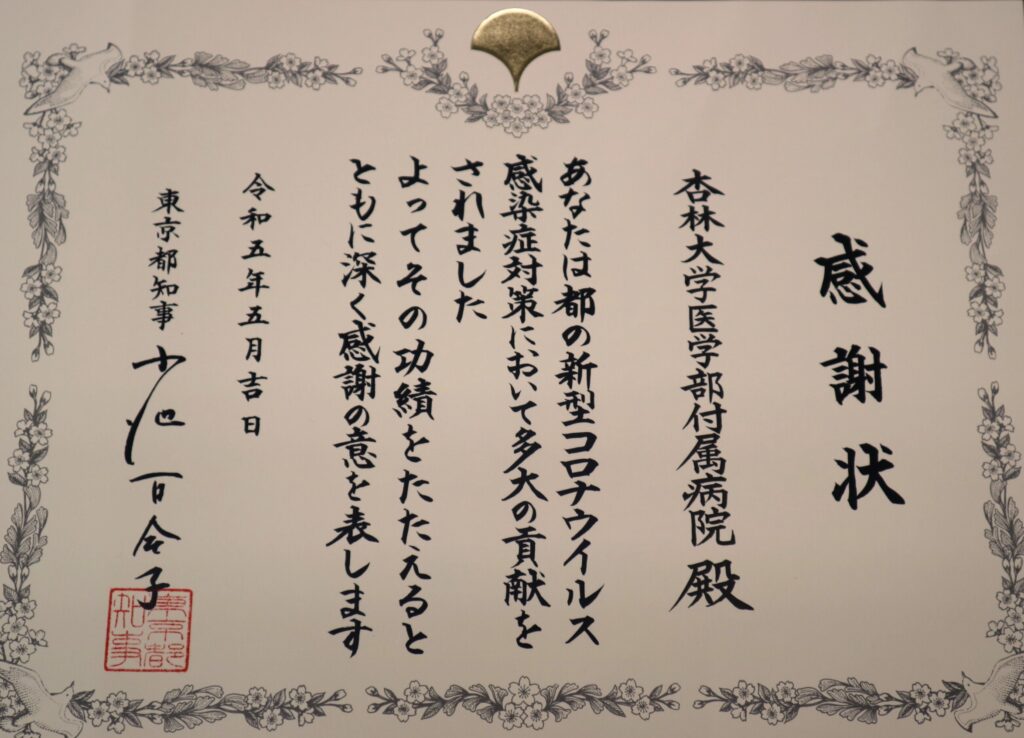 感謝状
杏林大学医学部付属病院 殿
あなたは都の新型コロナウイルス
感染症対策において多大の貢献を
されました
よってその功績をたたえると
ともに深く感謝の意を表します
令和五年五月吉日
東京都知事 小池百合子
東京都
知事